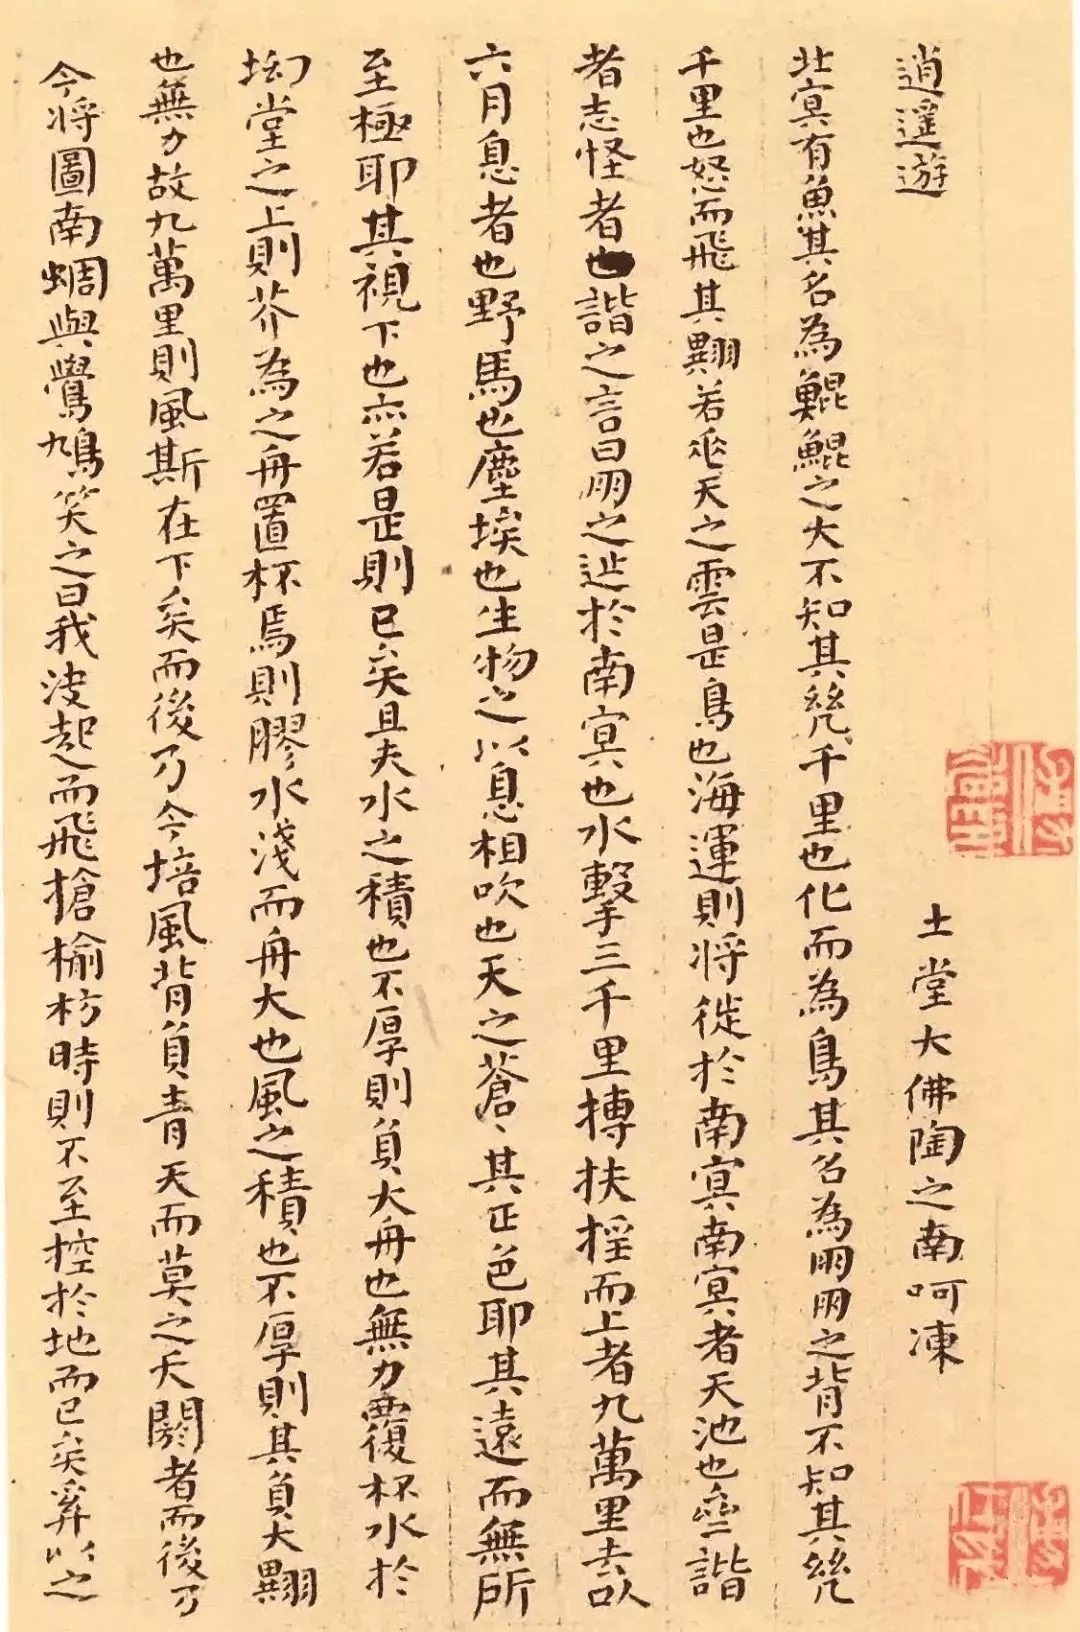 逍遥遊
土堂大佛陶之南呵凍
北冥有魚其名為鯤鯤之大不知其幾千里也化而為鳥其名為朋朋之背不知其幾
千里也怒而飛其翼若垂天之雲是鳥也海運則將徙於南冥南冥者天池也齊諧
者志怪者也諧之言曰朋之徙於南冥也水擊三千里摶扶搖而上者九萬里去以
六月息者也野馬也塵埃也生物之以息相吹也天之蒼〻其正色耶其遠而無所
至極耶其視下也亦若是則已矣且夫水之積也不厚則負大舟也無力覆杯水於
坳堂之上則芥為之舟置杯焉則膠水淺而舟大也風之積也不厚則其負大翼
也無力故九萬里則風斯在下矣而後乃今培風背負青天而莫之夭閼者而後乃
今將圖南蜩與鷽鳩笑之曰我決起而飛槍榆枋時則不至控於地而已矣奚以之